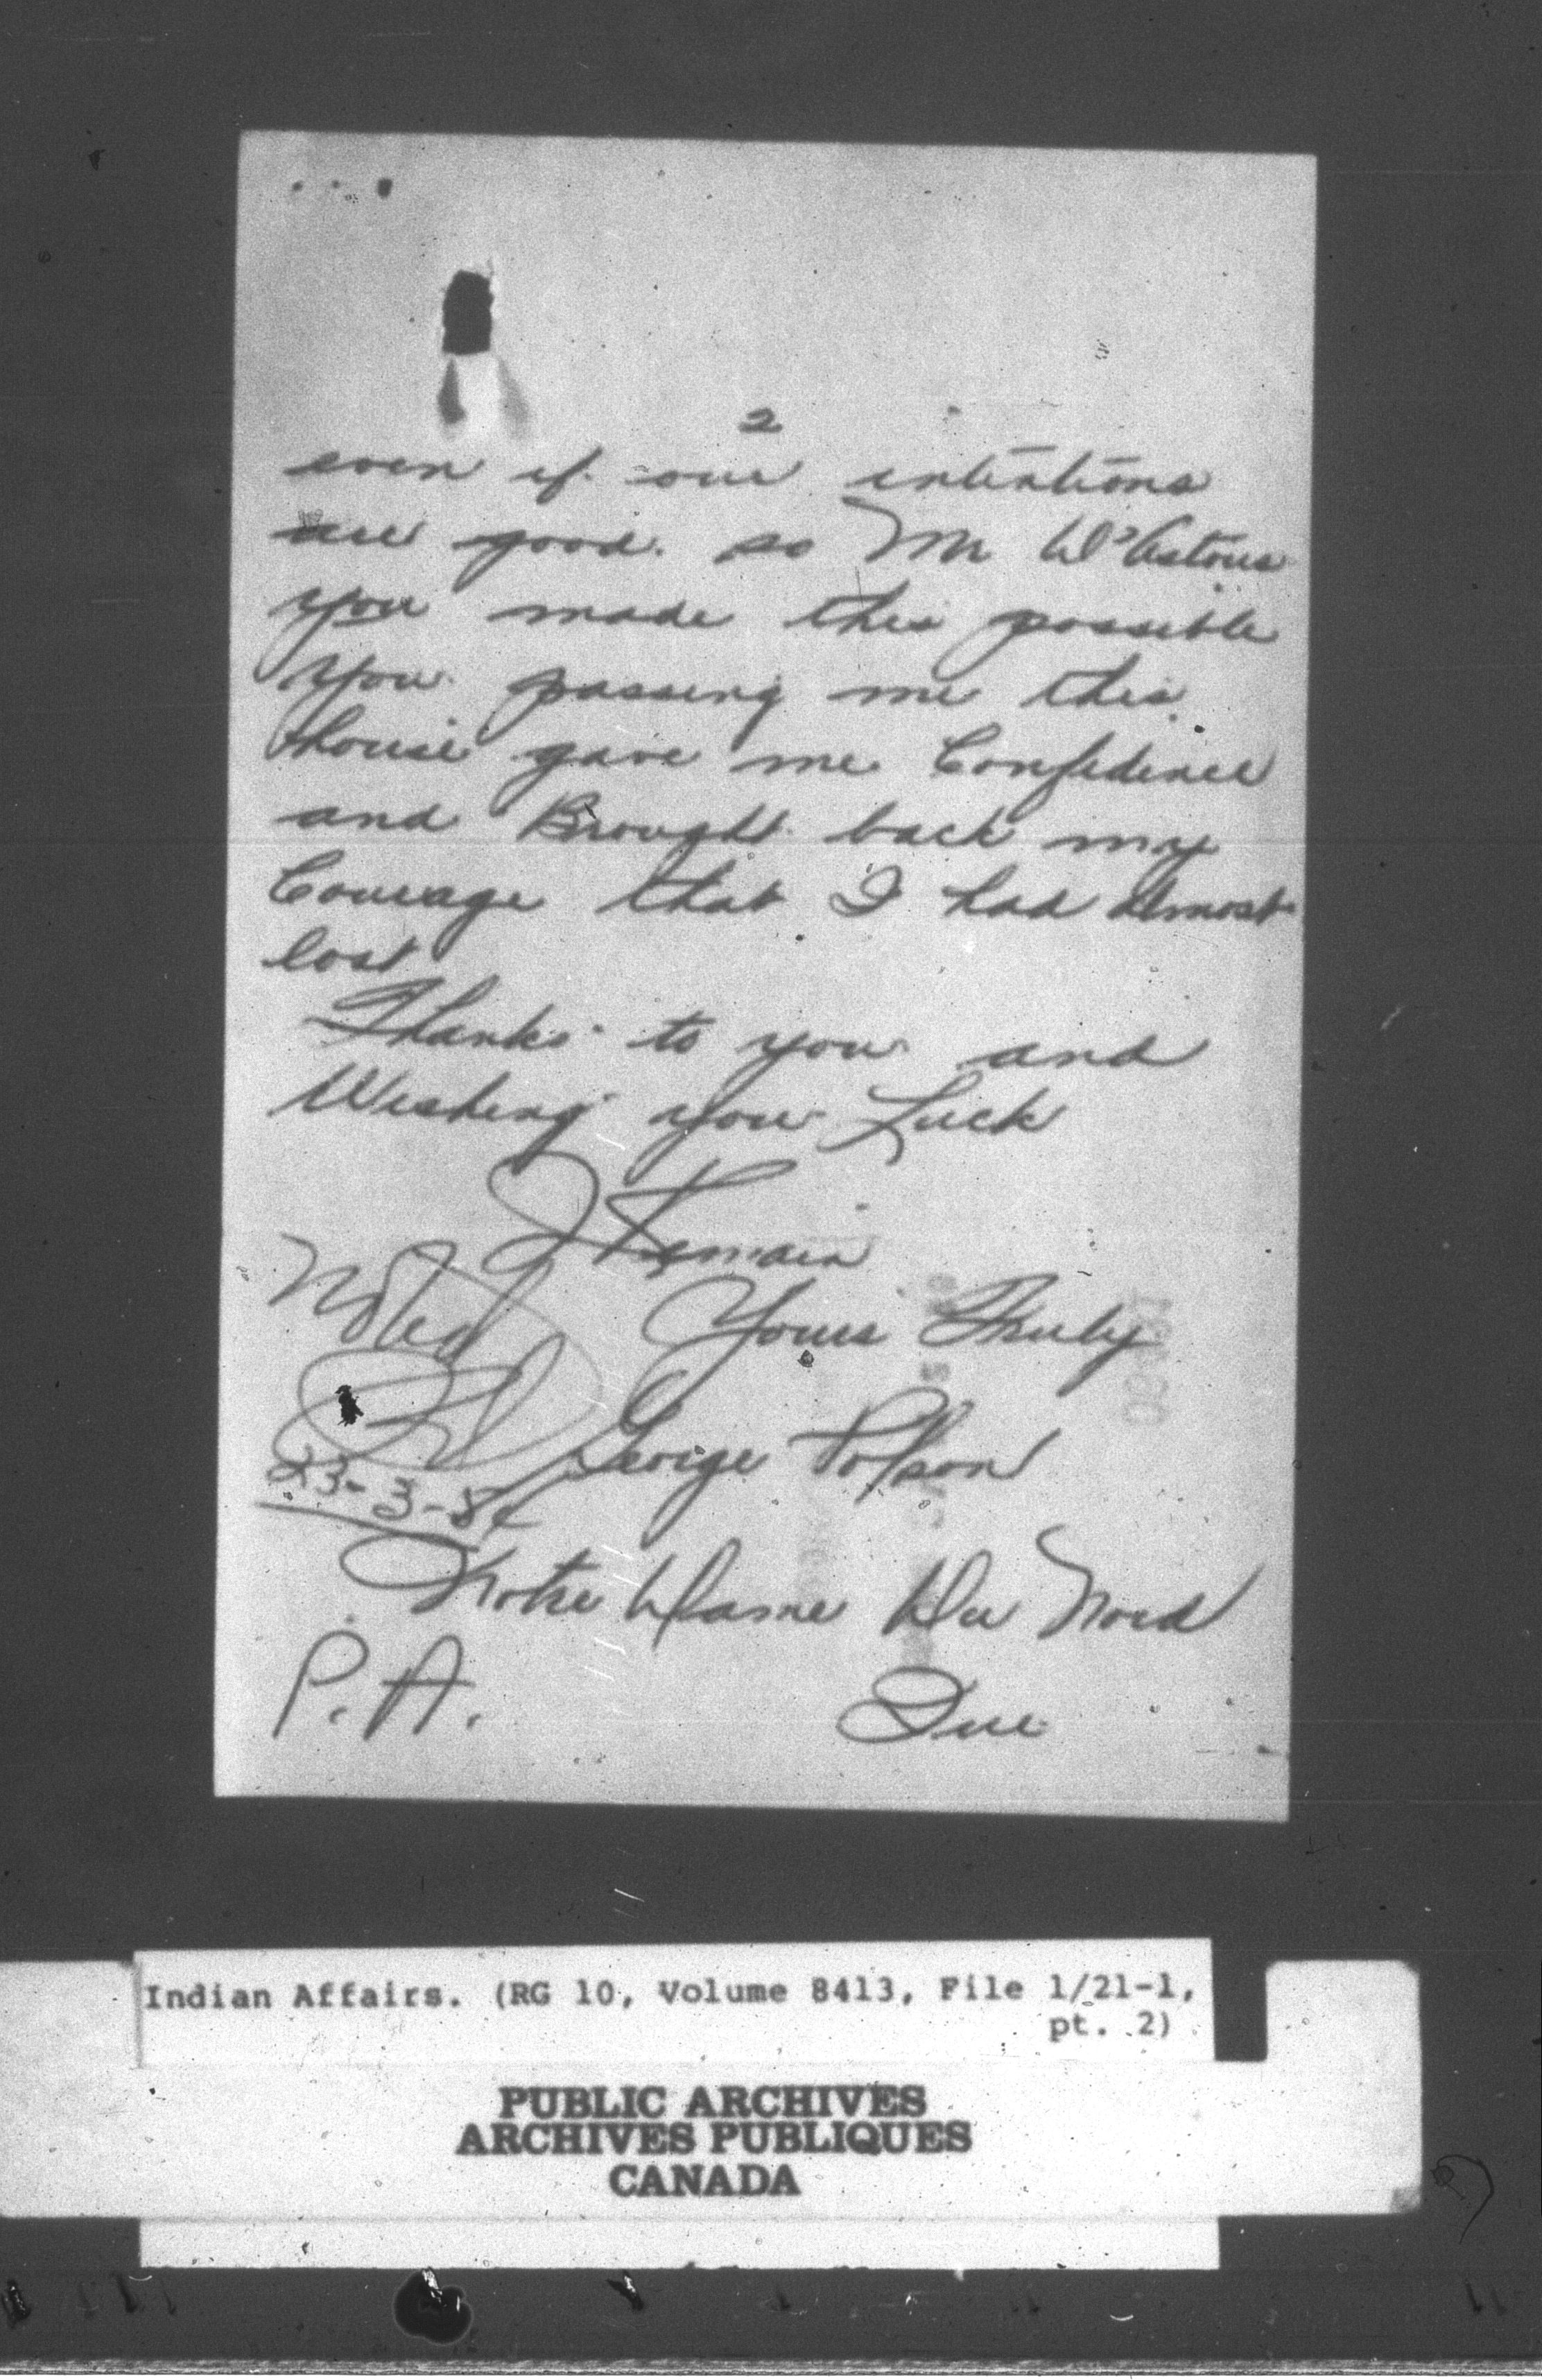 2
even if our intentions
are good. so Mr D'Astous
you made this possible
you passing me this
house gave me Confidence
and Brought back my
Courage that I had almost
lost
Thanks to you and
Wishing you Luck
I Remain
Noted
Yours Truly
George Polson
23-3-54
Notre Dame Du Nord
P. A.
Que
Indian Affairs. (RG 10, Volume 8413, File 1/21-1,
pt. 2)
PUBLIC ARCHIVES
ARCHIVES PUBLIQUES
CANADA